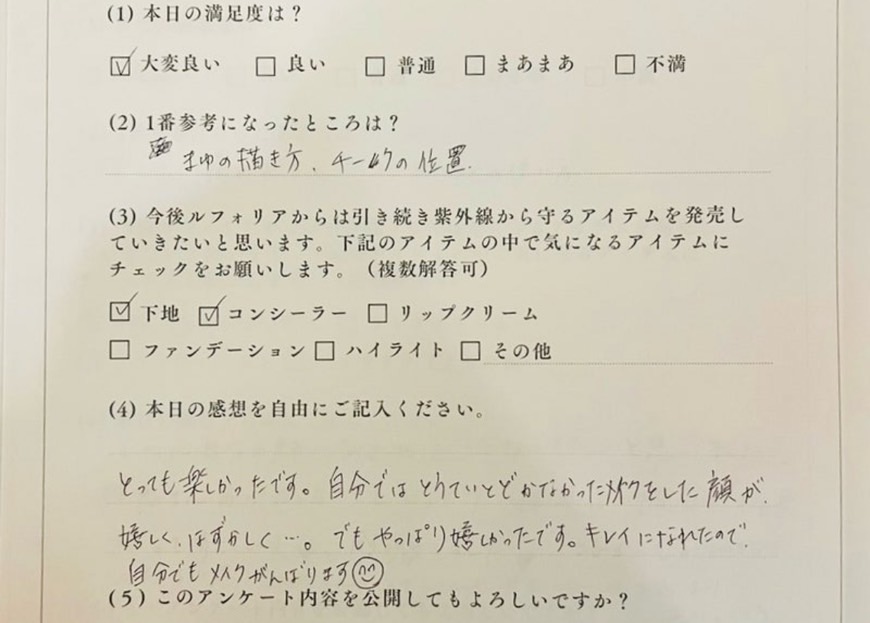 (1) 本日の満足度は？
☑ 大変良い □ 良い □ 普通 □ まあまあ □ 不満
(2) 1番参考になったところは？
まゆの描き方、チークの位置.
(3) 今後ルフォリアからは引き続き紫外線から守るアイテムを発売し
ていきたいと思います。下記のアイテムの中で気になるアイテムに
チェックをお願いします。（複数解答可）
☑ 下地 ☑ コンシーラー □ リップクリーム
□ ファンデーション □ ハイライト □ その他
(4) 本日の感想を自由にご記入ください。
とっても楽しかったです。自分ではとうていとどかなかったメイクをした顔が、
嬉しく、はずかしく…。でもやっぱり嬉しかったです。キレイになれたので、
自分でもメイクがんばります
(5) このアンケート内容を公開してもよろしいですか？